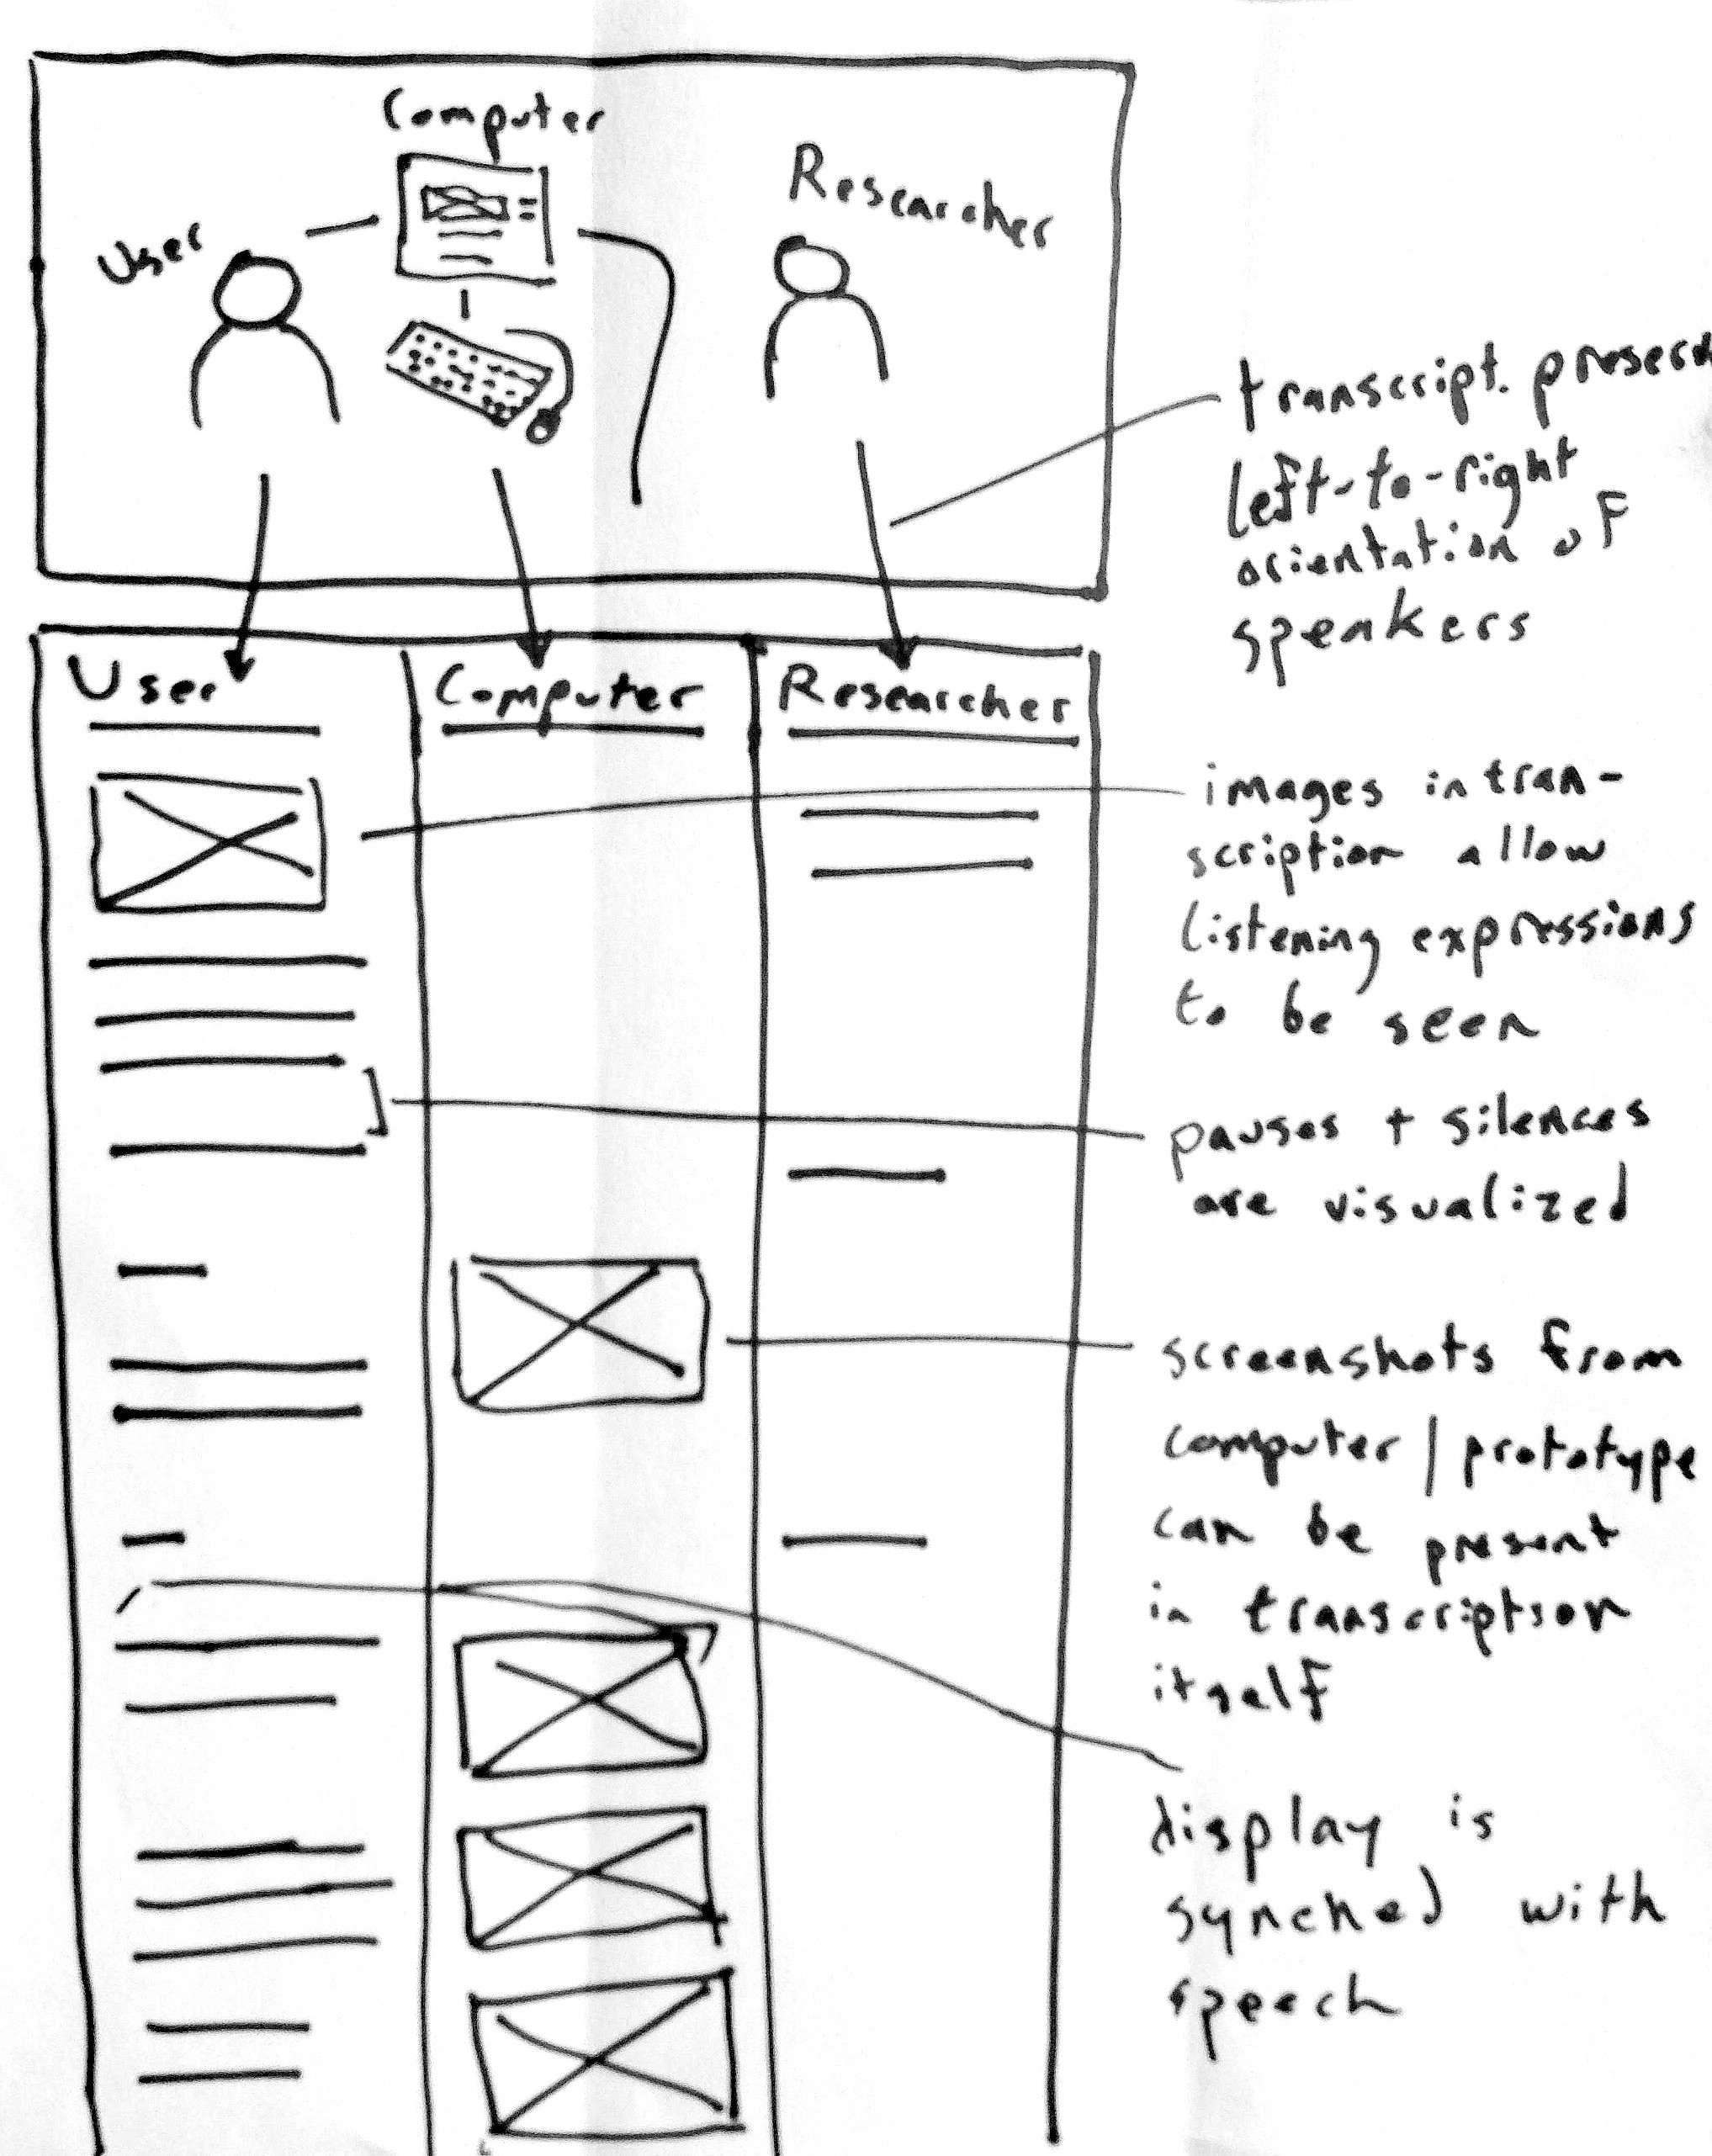 Computer
Researcher
User
transcript.
left-to-right
orientation of
speakers
User
Computer
Researcher
images in tran-
scription allow
listening expressions
to be seen
pauses + silences
are visualized
screenshots from
computer / prototype
can be present
in transcription
itself
display is
synched with
speech